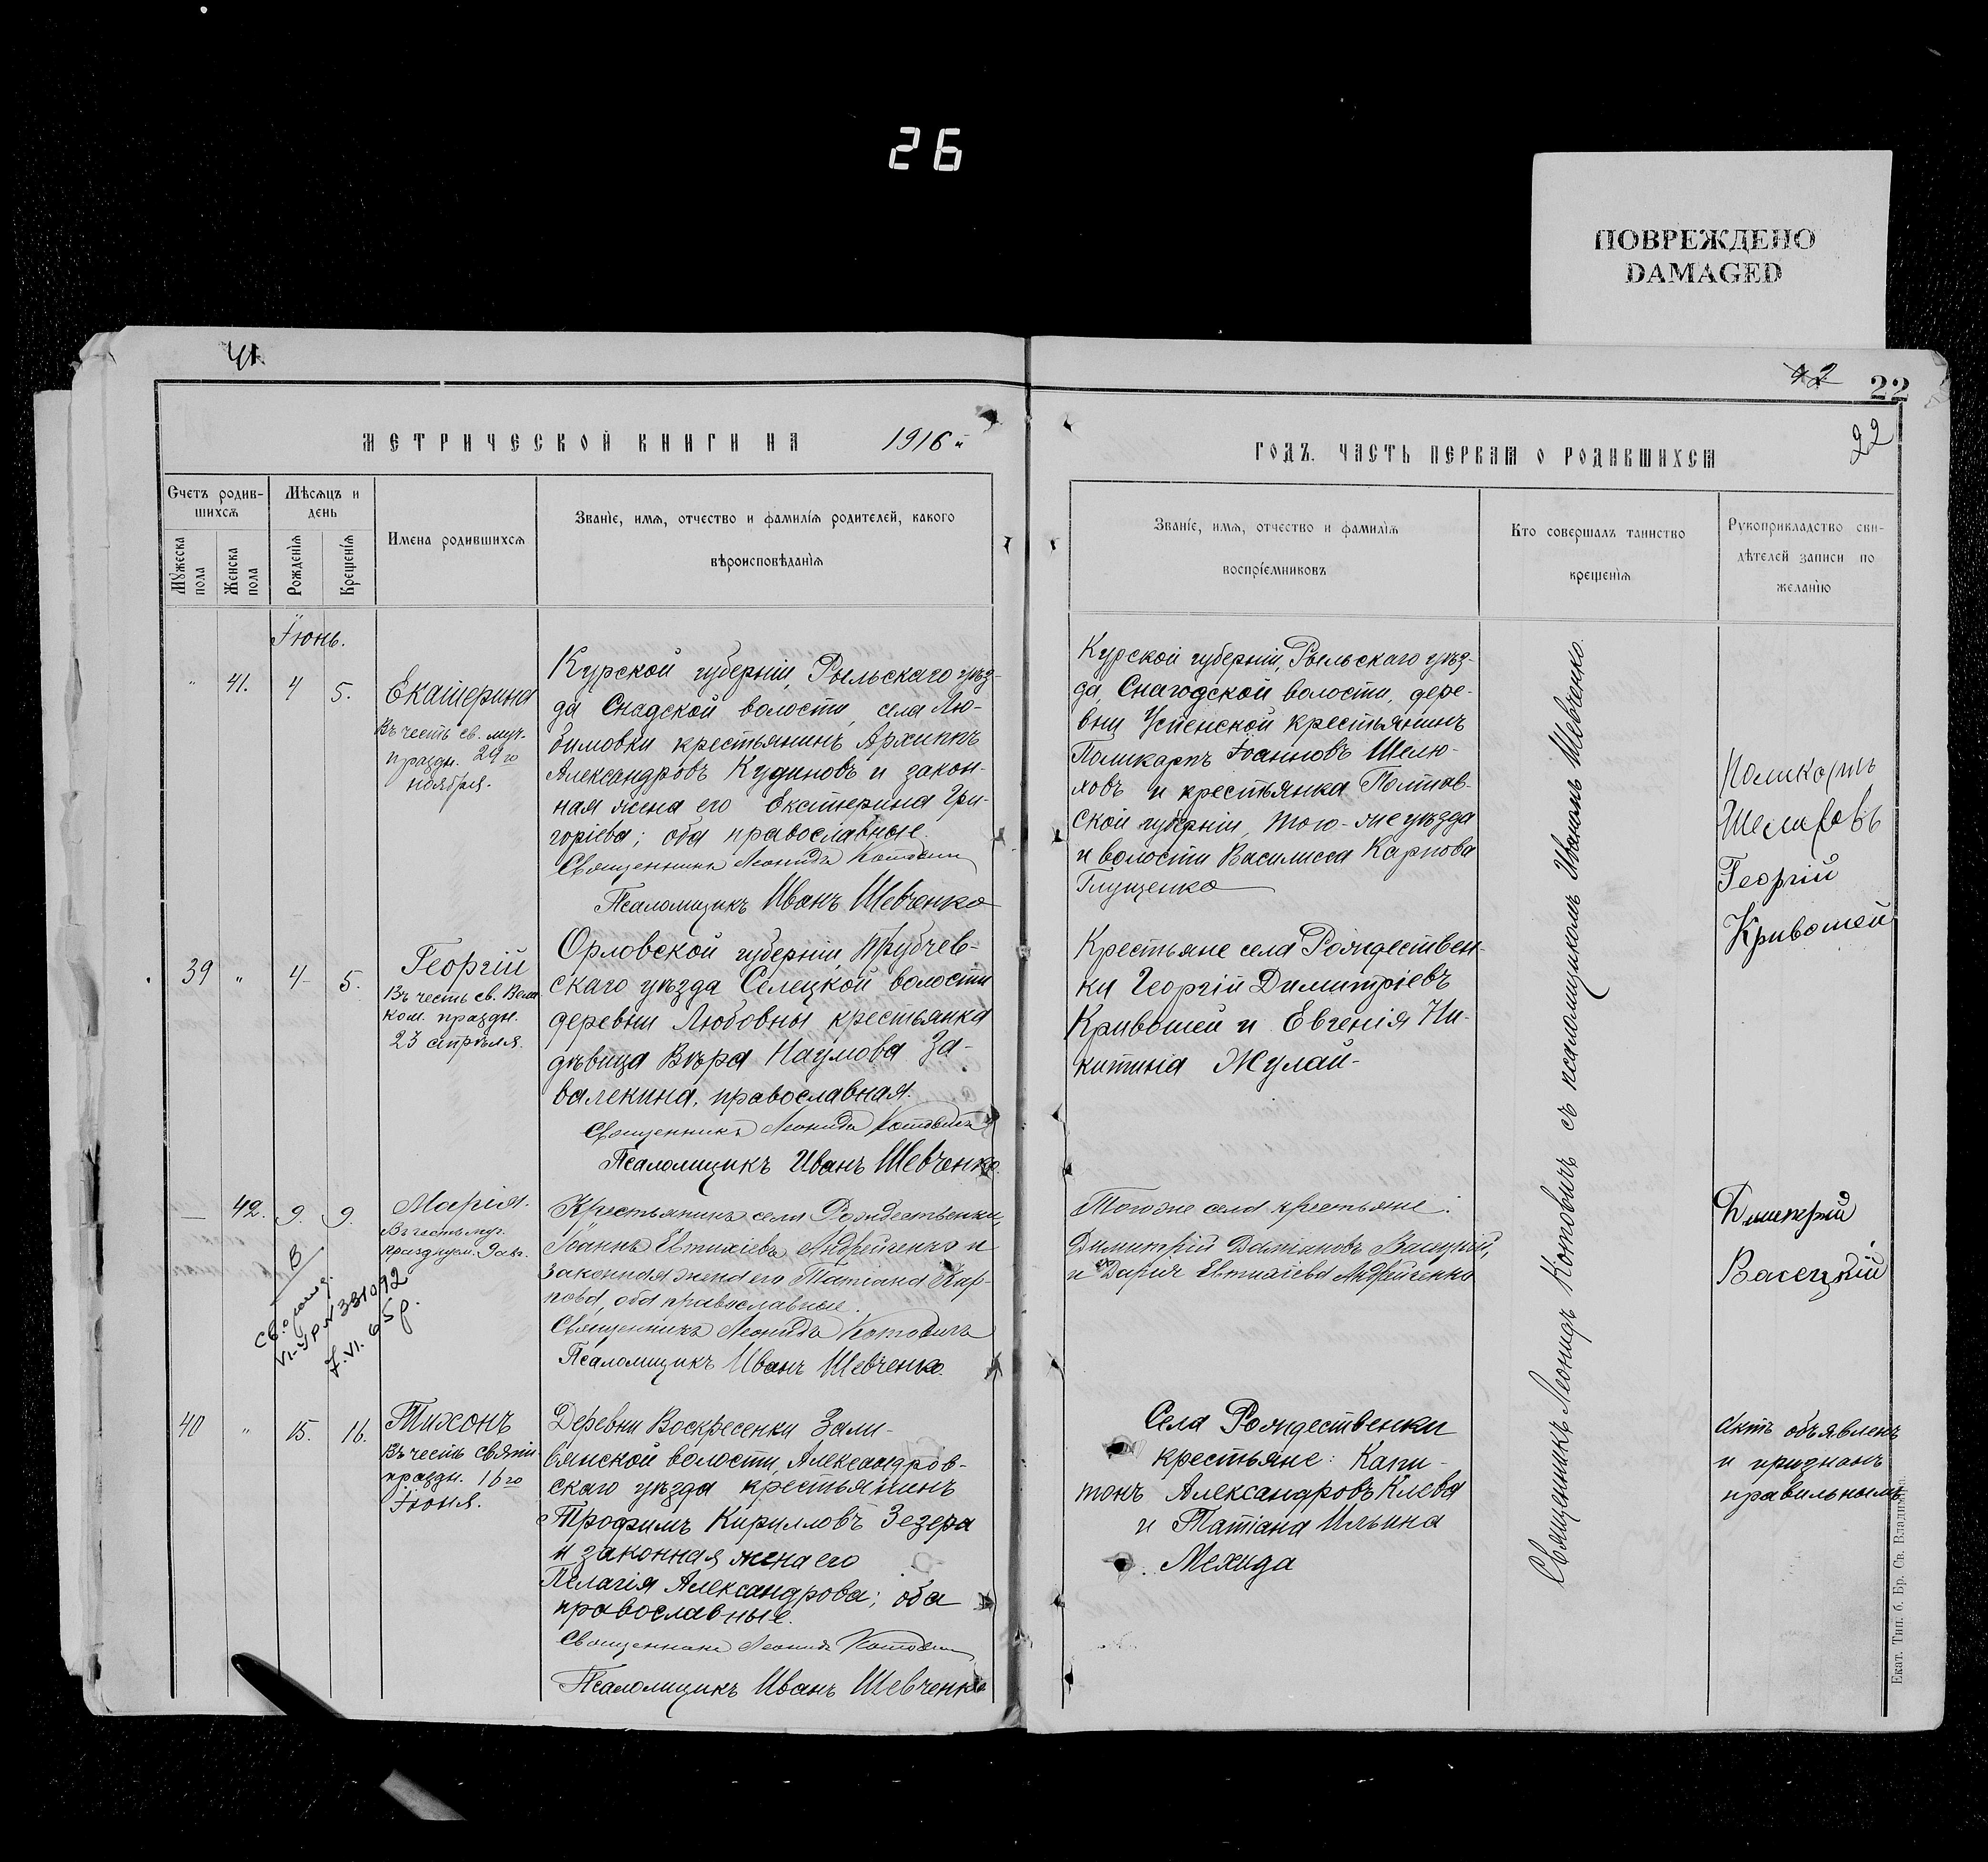 26
ПОВРЕЖДЕНО
DAMAGED
41.
42
22
22
МЕТРИЧЕСКОЙ КНИГИ НА 1916 й
ГОДЪ. ЧАСТЬ ПЕРВАЯ О РОДИВШИХСЯ
Счетъ родив-
шихся
Мужеска пола
Женска пола
Мѣсяцъ и
день
Рожденія
Крещенія
Имена родившихся
Званіе, имя, отчество и фамилія родителей, какого
вѣроисповѣданія
Званіе, имя, отчество и фамилія
воспріемниковъ
Кто совершалъ таинство
крещенія
Рукоприкладство сви-
дѣтелей записи по
желанію
Іюнь.
" 41. 4 5.
Екатерина
Въ честь св. муч.
праздн. 24го
ноября.
Курской губерніи, Рыльскаго уѣз-
да Снадской волости, села Лю-
бимовки крестьянинъ Архиппъ
Александровъ Кудиновъ и закон-
ная жена его Екатерина Гри-
горіева; оба православные.
Священникъ Леонидъ Котовичъ
Псаломщикъ Иванъ Шевченко
Курской губерніи, Рыльскаго уѣз-
да, Снагодской волости, дере-
вни Успенской крестьянинъ
Поликарпъ Іоанновъ Шелю-
ховъ и крестьянка Полтав-
ской губерніи, того-же уѣзда
и волости Василисса Карпова
Глущенко
Поликарпъ
Шелиховъ
Георгій
Кривошей
39 " 4 5.
Георгій
Въ честь св. Вели
ком. праздн.
23 апрѣля.
Орловской губерніи, Трубчев-
скаго уѣзда Селецкой волости
деревни Любовны крестьянка
дѣвица Вѣра Наумова За-
валекина, православная.
Священникъ Леонидъ Котовичъ
Псаломщикъ Иванъ Шевченко
Крестьяне села Рождествен-
ки Георгій Димитріевъ
Кривошей и Евгенія Ни-
китина Жулай-
— 42. 9. 9.
Марія.
Въ честь муч.
Крестьянинъ села Рождественки,
Іоаннъ Евтихіевъ Андрейченко и
законная жена его Татіана Кар-
пова, оба православные.
Священникъ Леонидъ Котовичъ
Псаломщикъ Иванъ Шевченко.
Того же села крестьяне:
Димитрій Даміановъ Васецкій,
и Дарія Евтихіева Андрейченко
Дмитрій
Васецкій
В
VI-УР №331092
7.VI.65р.
40 " 15. 16.
Тихонъ
Въ честь святи
праздн. 16го
Іюня.
Деревни Воскресенки Зали-
вянской волости, Александров-
скаго уѣзда крестьянинъ
Трофимъ Кирилловъ Зезера
и законная жена его
Пелагія Александрова; оба
православные.
Священникъ Леонидъ Котовичъ
Псаломщикъ Иванъ Шевченко
Села Рождественки
крестьяне: Капи-
тонъ Александровъ Клева
и Татіана Ильина
Мехида
Священникъ Леонидъ Котовичъ съ псаломщикомъ Иваномъ Шевченко.
Актъ объявленъ
и признанъ
правильнымъ
Екат. Тип. б. Бр. Св. Владимір.